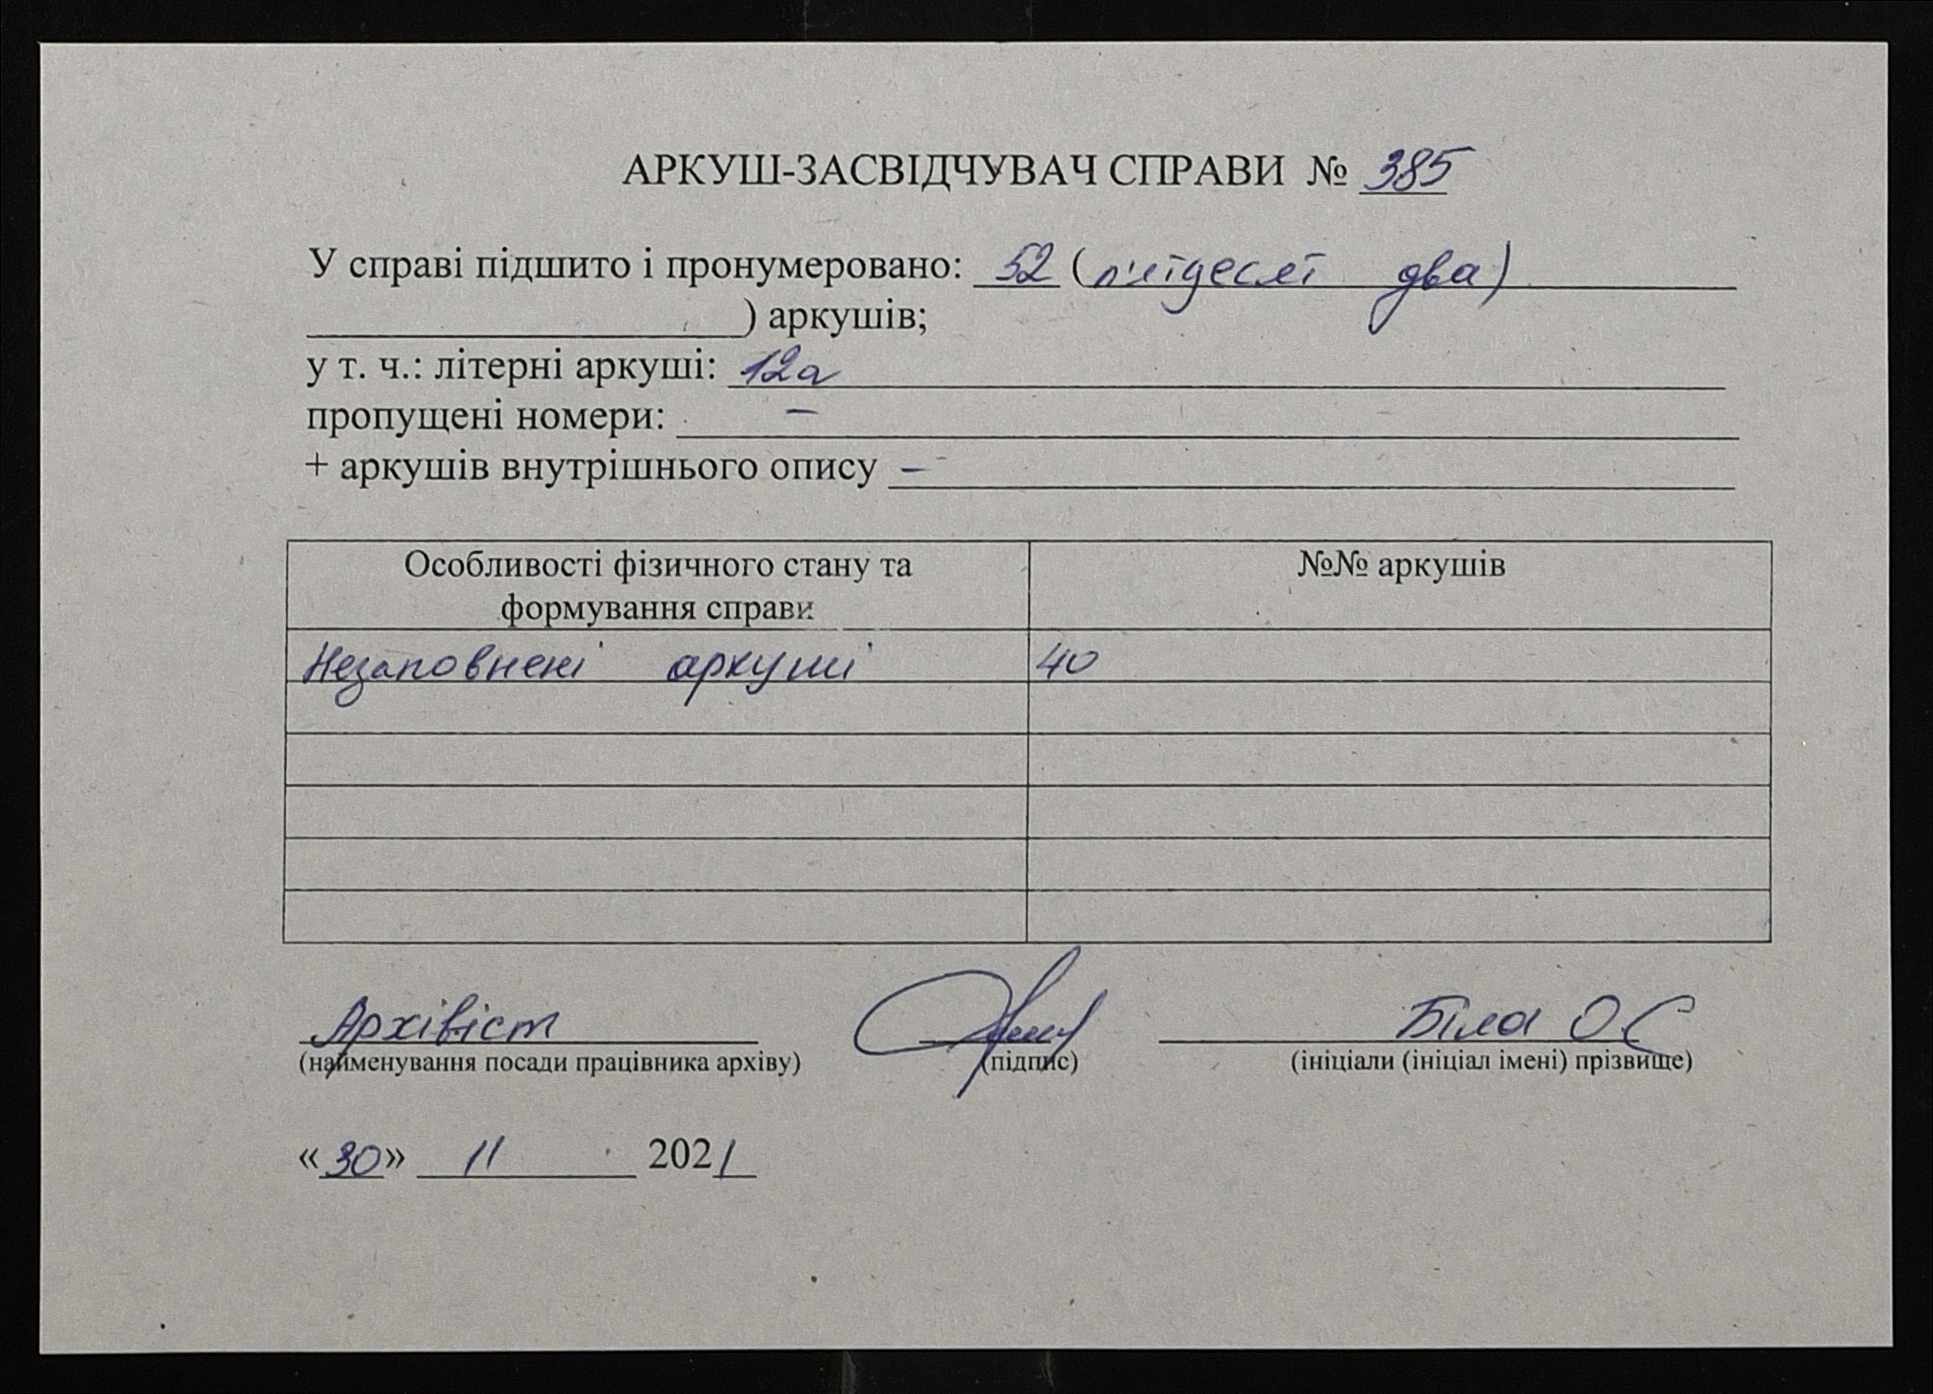 АРКУШ-ЗАСВІДЧУВАЧ СПРАВИ № 385
У справі підшито і пронумеровано: 52 (п'ятдесят два)
) аркушів;
у т. ч.: літерні аркуші: 12а
пропущені номери: –
+ аркушів внутрішнього опису –
Особливості фізичного стану та
формування справи
№№ аркушів
Незаповнені аркуші 40
Архівіст Біла О С
(найменування посади працівника архіву) (підпис) (ініціали (ініціал імені) прізвище)
«30» 11 2021